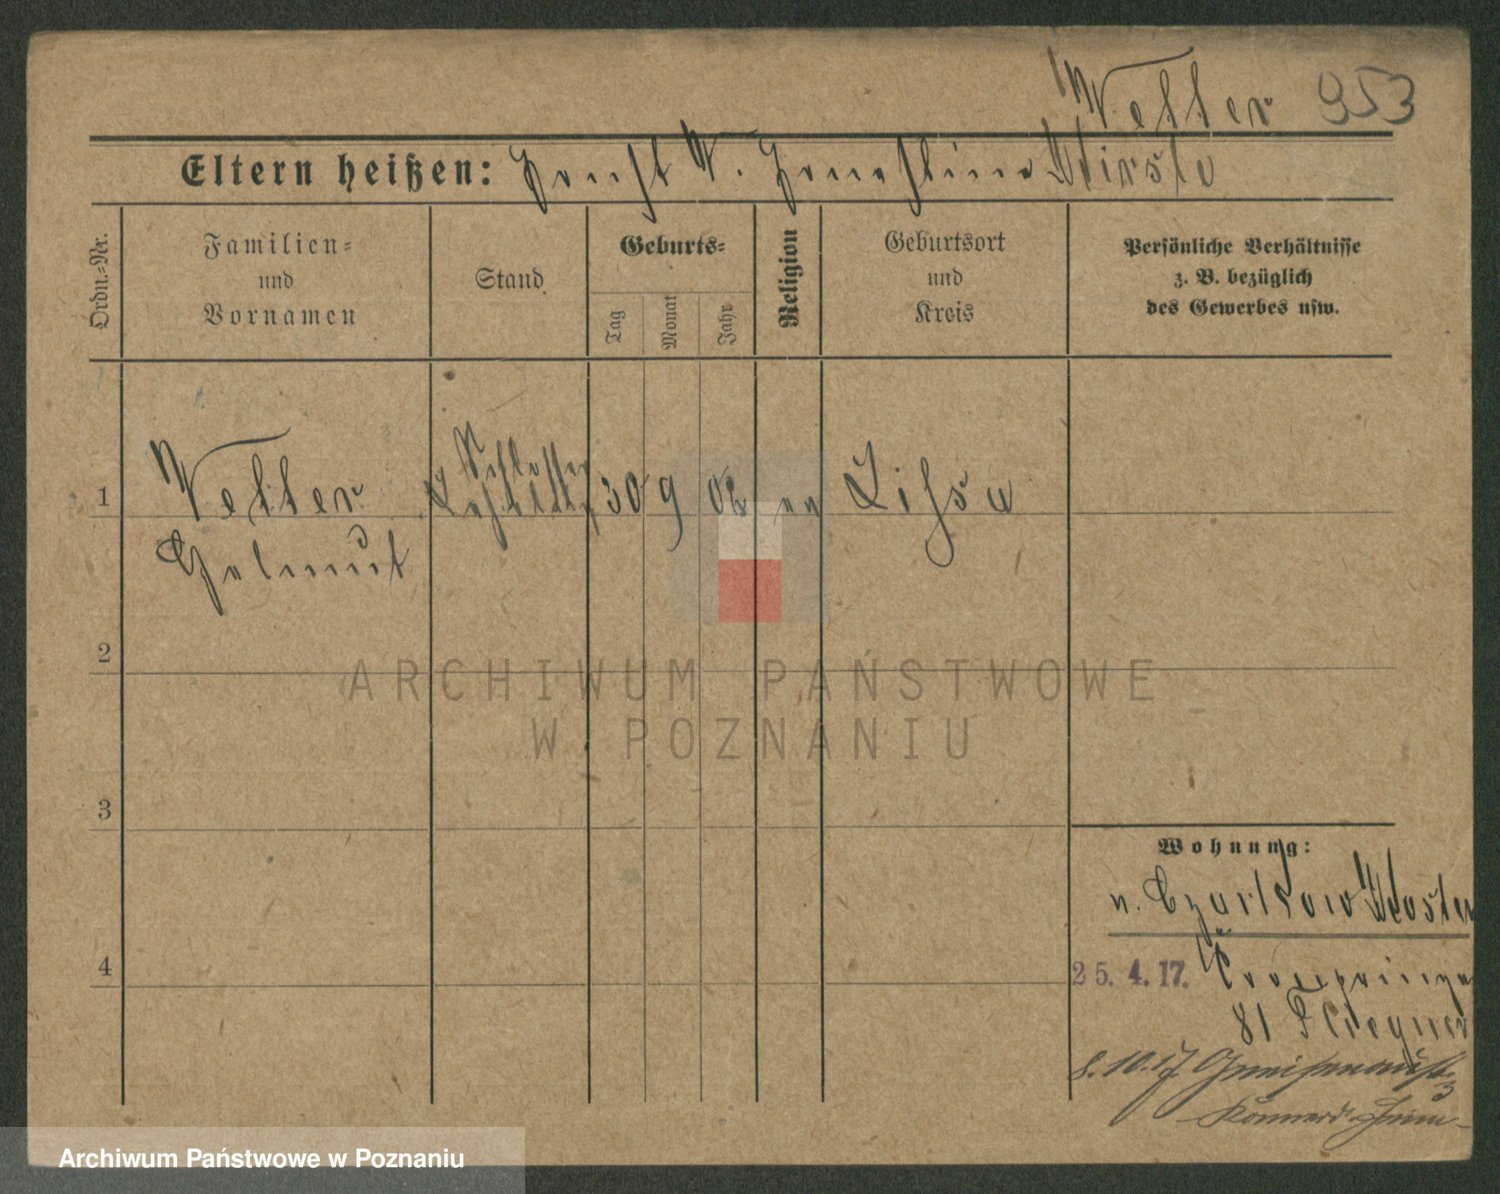 Vetter 953
Eltern heißen: Horst V. Ernestine
Ordn.-Nr.
Familien-
und
Vornamen
Stand
Geburts-
Tag
Monat
Jahr
Religion
Geburtsort
und
Kreis
Persönliche Verhältnisse
z. B. bezüglich
des Gewerbes usw.
Schlosser
1 Vetter 30 9 02 ev Lissa
Helmut
2
ARCHIWUM PAŃSTWOWE
W POZNANIU
3
Wohnung:
n. Czarnikow
4
25. 4. 17. Kronprinzen
81
8. 10. 17 Gneisenaustr.
3
Archiwum Państwowe w Poznaniu